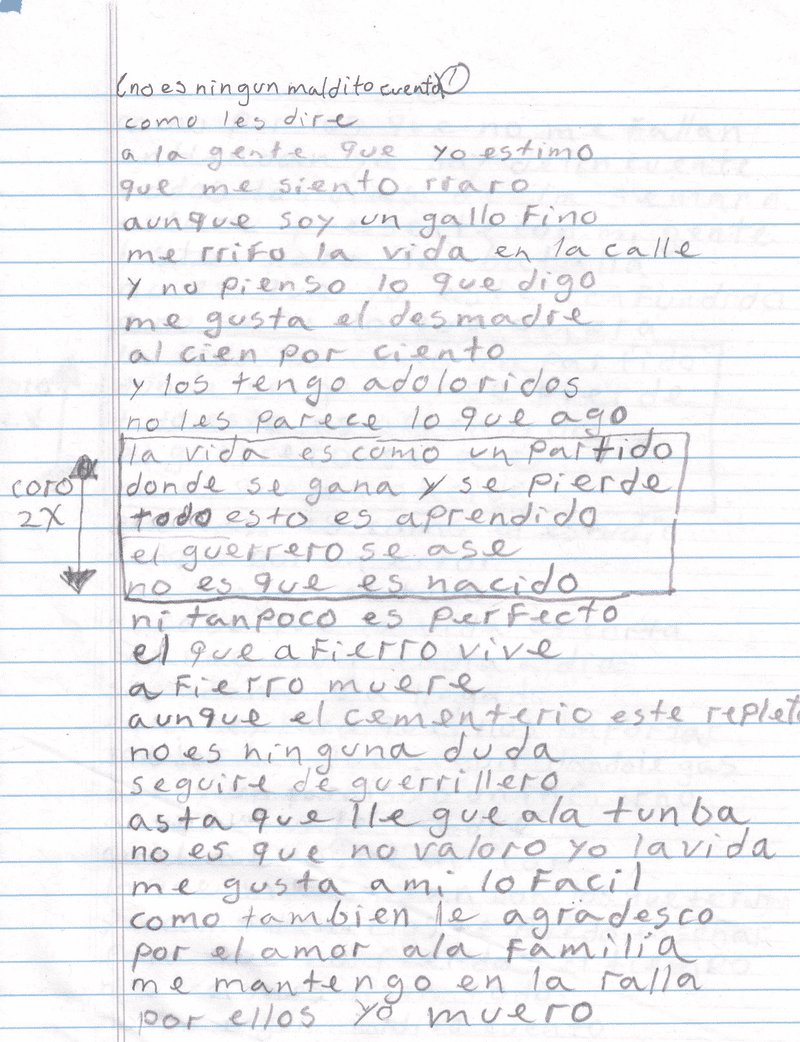 (no es ningun maldito cuento) 1
como les dire
a la gente que yo estimo
que me siento rraro
aunque soy un gallo fino
me rrifo la vida en la calle
y no pienso lo que digo
me gusta el desmadre
al cien por ciento
y los tengo adoloridos
no les parece lo que ago
la vida es como un partido
donde se gana y se pierde
coro 2X
todo esto es aprendido
el guerrero se ase
no es que es nacido
ni tanpoco es perfecto
el que a fierro vive
a fierro muere
aunque el cementerio este repleto
no es ninguna duda
seguire de guerrillero
asta que llegue ala tunba
no es que no valoro yo la vida
me gusta ami lo facil
como tambien le agradesco
por el amor ala familia
me mantengo en la ralla
por ellos yo muero